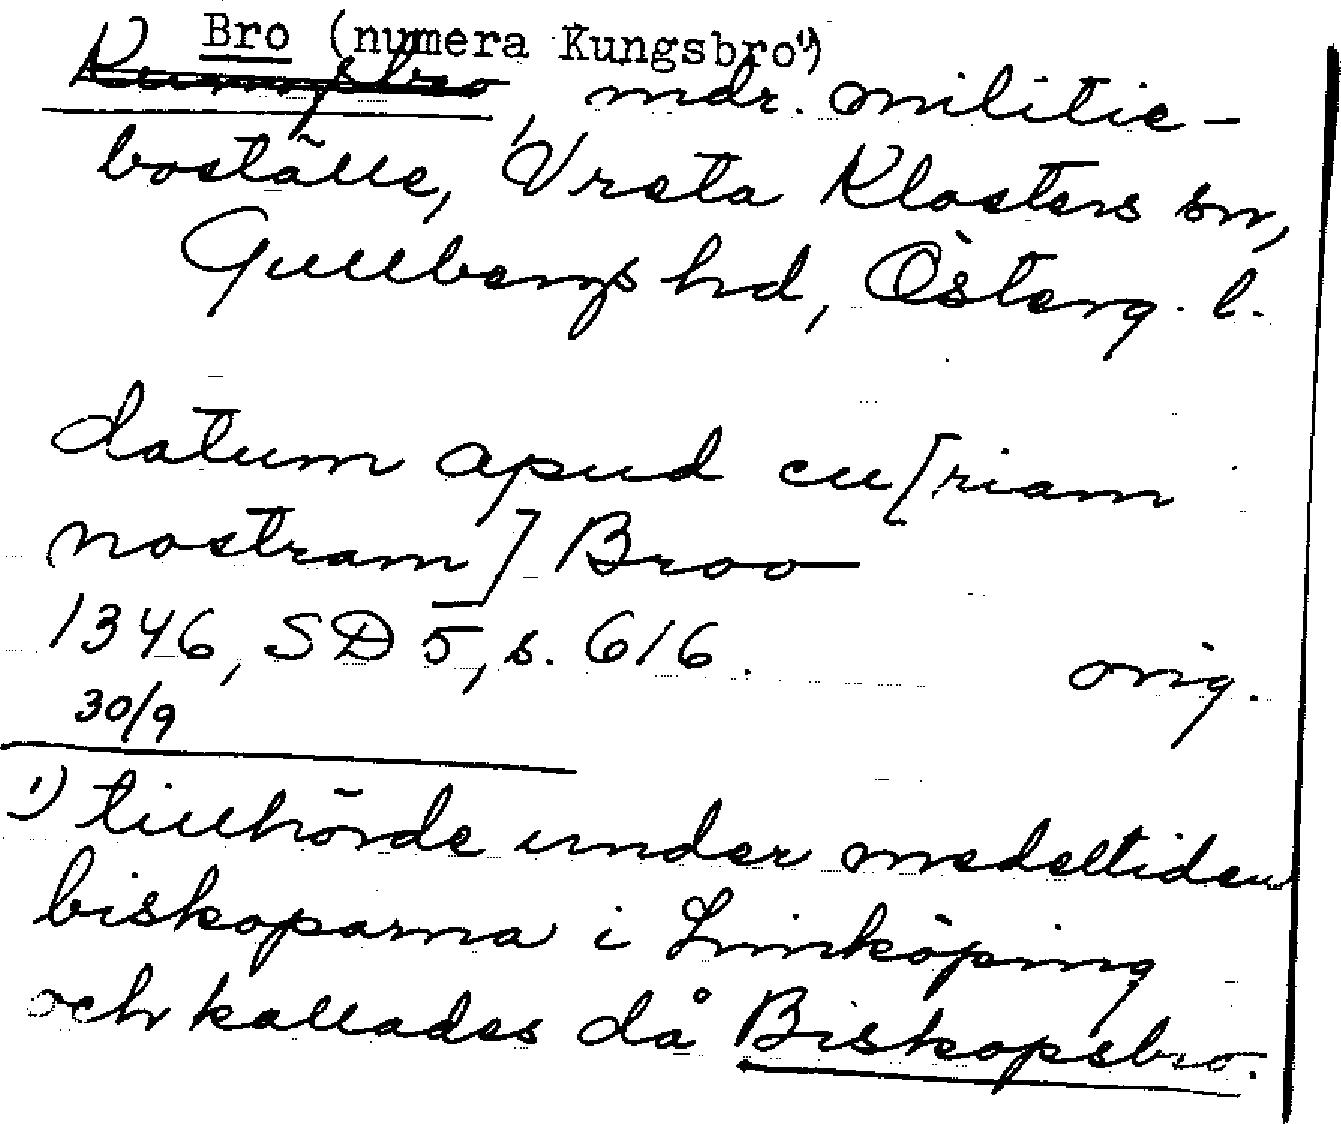 Bro (numera Kungsbro¹)
Kungsbro, mdr. militie-
boställe, Vreta Klosters sn,
Gullbergs hd, Österg. l.
datum apud cu[riam
nostram] Broo
1346, SD 5, s. 616. orig.
30/9
¹) tillhörde under medeltiden
biskoparna i Linköping
och kallades då Biskopsbro.